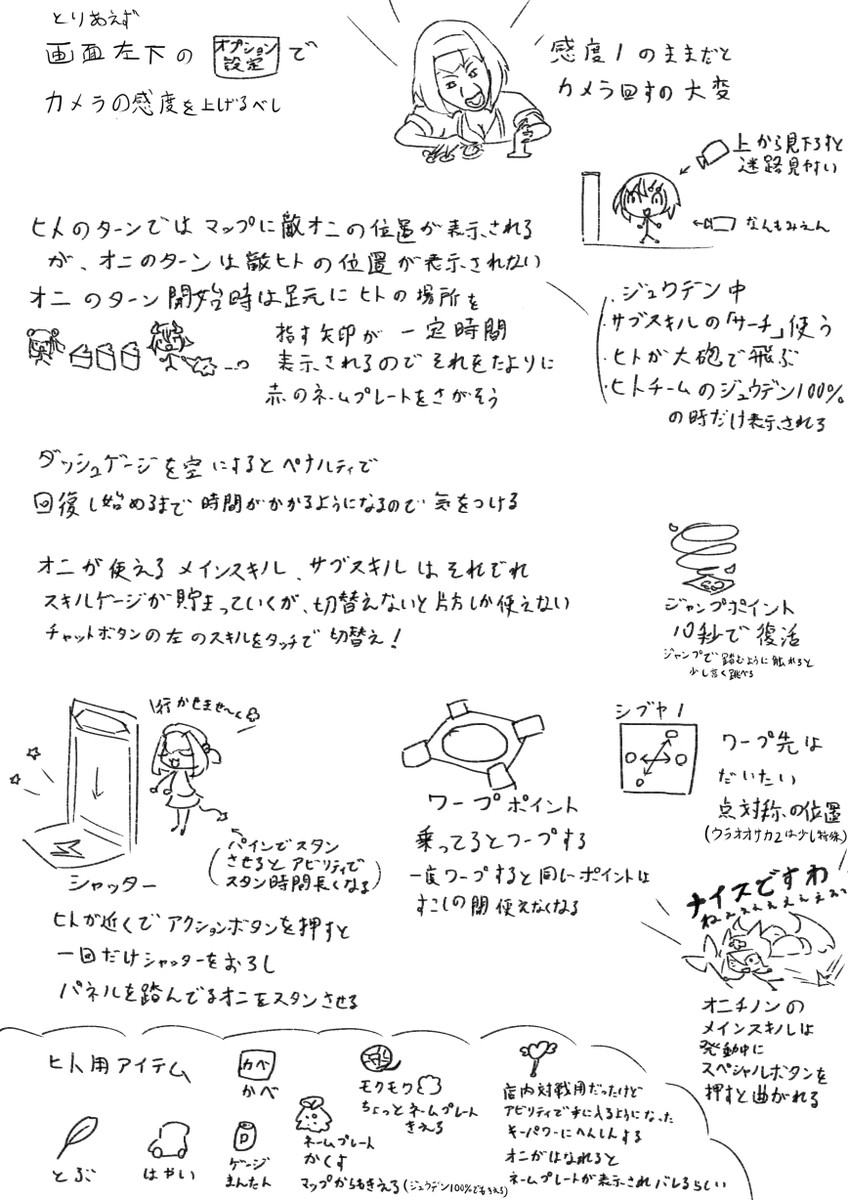 とりあえず
画面左下の オプション設定 で
カメラの感度を上げるべし
感度1のままだと
カメラ回すの大変
上から見下ろすと
迷路見やすい
なんもみえん
ヒトのターンでは マップに敵オニの位置が表示される
が、オニのターンは敵ヒトの位置が表示されない
オニのターン開始時は足元にヒトの場所を
指す矢印が 一定時間
表示されるのでそれをたよりに
赤のネームプレートをさがそう
・ジュウデン中
・サブスキルの「サーチ」使う
・ヒトが大砲で飛ぶ
・ヒトチームのジュウデン100%
の時だけ表示される
ダッシュゲージを空にするとペナルティで
回復し始めるまで時間がかかるようになるので気をつける
オニが使えるメインスキル、サブスキルはそれぞれ
スキルゲージが貯まっていくが、切替えないと片方しか使えない
チャットボタンの左のスキルをタッチで切替え!
ジャンプポイント
10秒で復活
ジャンプで踏むように触れると
少し高く跳べる
\行かせませ〜ん
パインでスタン
させるとアビリティで
スタン時間長くなる
シャッター
ヒトが近くでアクションボタンを押すと
一回だけシャッターをおろし
パネルを踏んでるオニをスタンさせる
ワープポイント
乗ってるとワープする
一度ワープすると同じポイントは
すこしの間使えなくなる
シブヤ1
ワープ先は
だいたい
点対称の位置
(ウラオオサカ2は少し特殊)
ナイスですわ
ねぇぇぇぇぇぇぇっ
オニチノンの
メインスキルは
発動中に
スペシャルボタンを
押すと曲がれる
ヒト用アイテム
カベ
かべ
モクモク
ちょっとネームプレート
きえる
店内対戦用だったけど
アビリティで手に入るようになった
キーパワーにへんしんする
オニがはなれると
ネームプレートが表示されバレるらしい
とぶ
はやい
D
ゲージ
まんたん
ネームプレート
かくす
マップからもきえる(ジュウデン100%でもきえる)